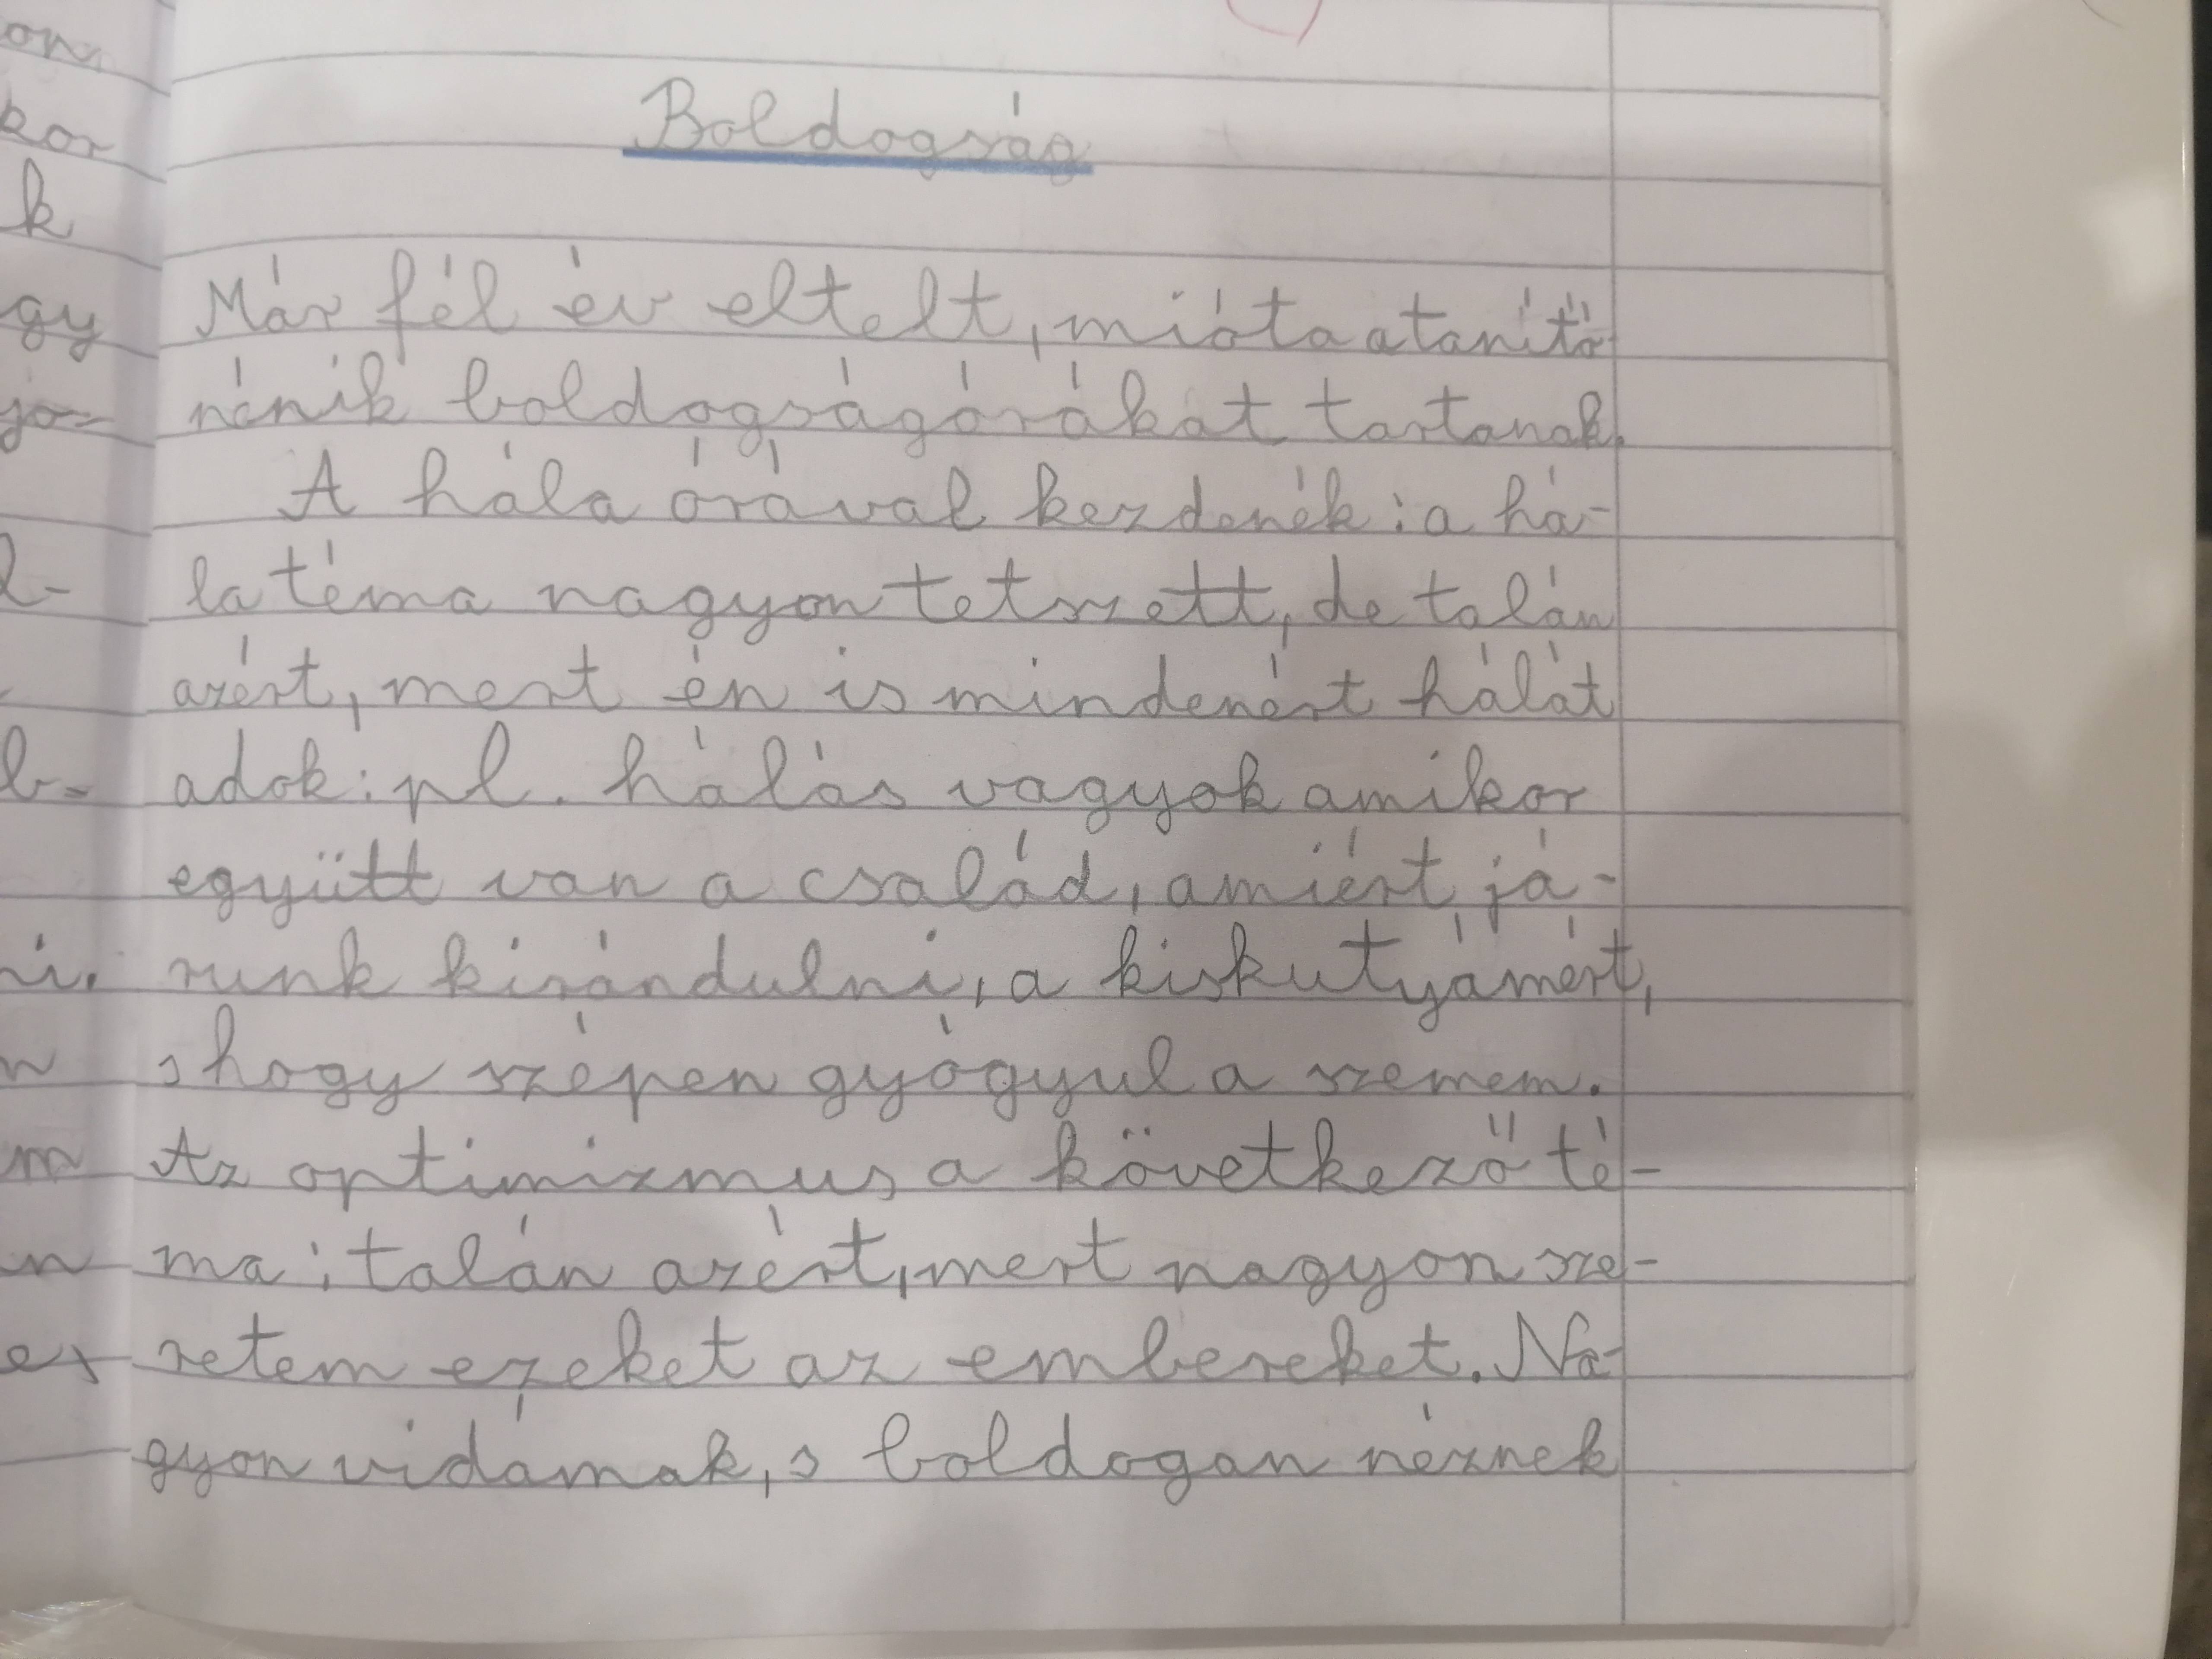 Boldogság
Már fél év eltelt, mióta a tanító
nénik boldogságórákat tartanak.
A hála órával kezdenék: a há-
la téma nagyon tetszett, de talán
azért, mert én is mindenért hálát
adok: pl. hálás vagyok amikor
együtt van a család, amiért já-
runk kirándulni, a kiskutyámért,
s hogy szépen gyógyul a szemem.
Az optimizmus a következő té-
ma: talán azért, mert nagyon sze-
retem ezeket az embereket. Na-
gyon vidámak, s boldogan néznek